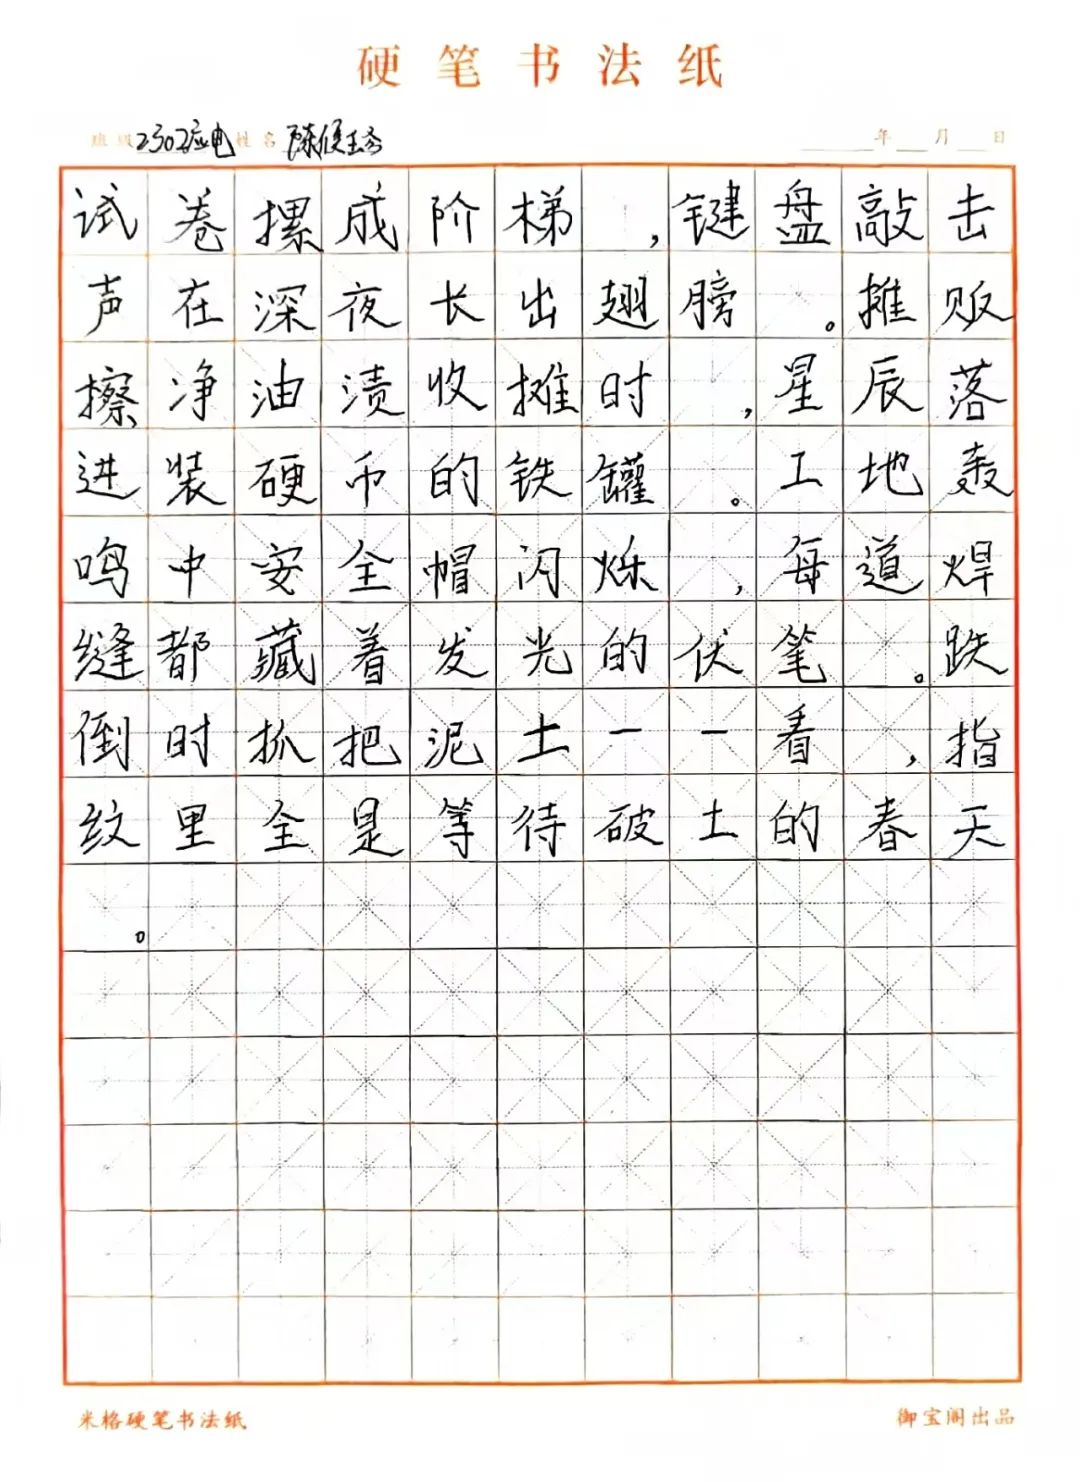 硬笔书法纸
班级2302应电姓名陈俊 年 月 日
试卷摞成阶梯,键盘敲击
声在深夜长出翅膀。摊贩
擦净油渍收摊时,星辰落
进装硬币的铁罐。工地轰
鸣中安全帽闪烁,每道焊
缝都藏着发光的伏笔。跌
倒时抓把泥土一一看,指
纹里全是等待破土的春天
。
米格硬笔书法纸 御宝阁出品